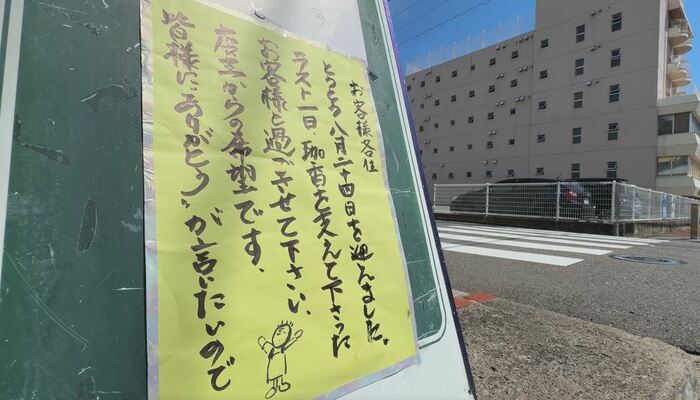 お客様各位
とうとう八月二十四日を迎えました。
ラスト一日、珈香を支えて下さった
お客様と過ごさせて下さい。
店主からの希望です。
皆様に"ありがとう"が言いたいので